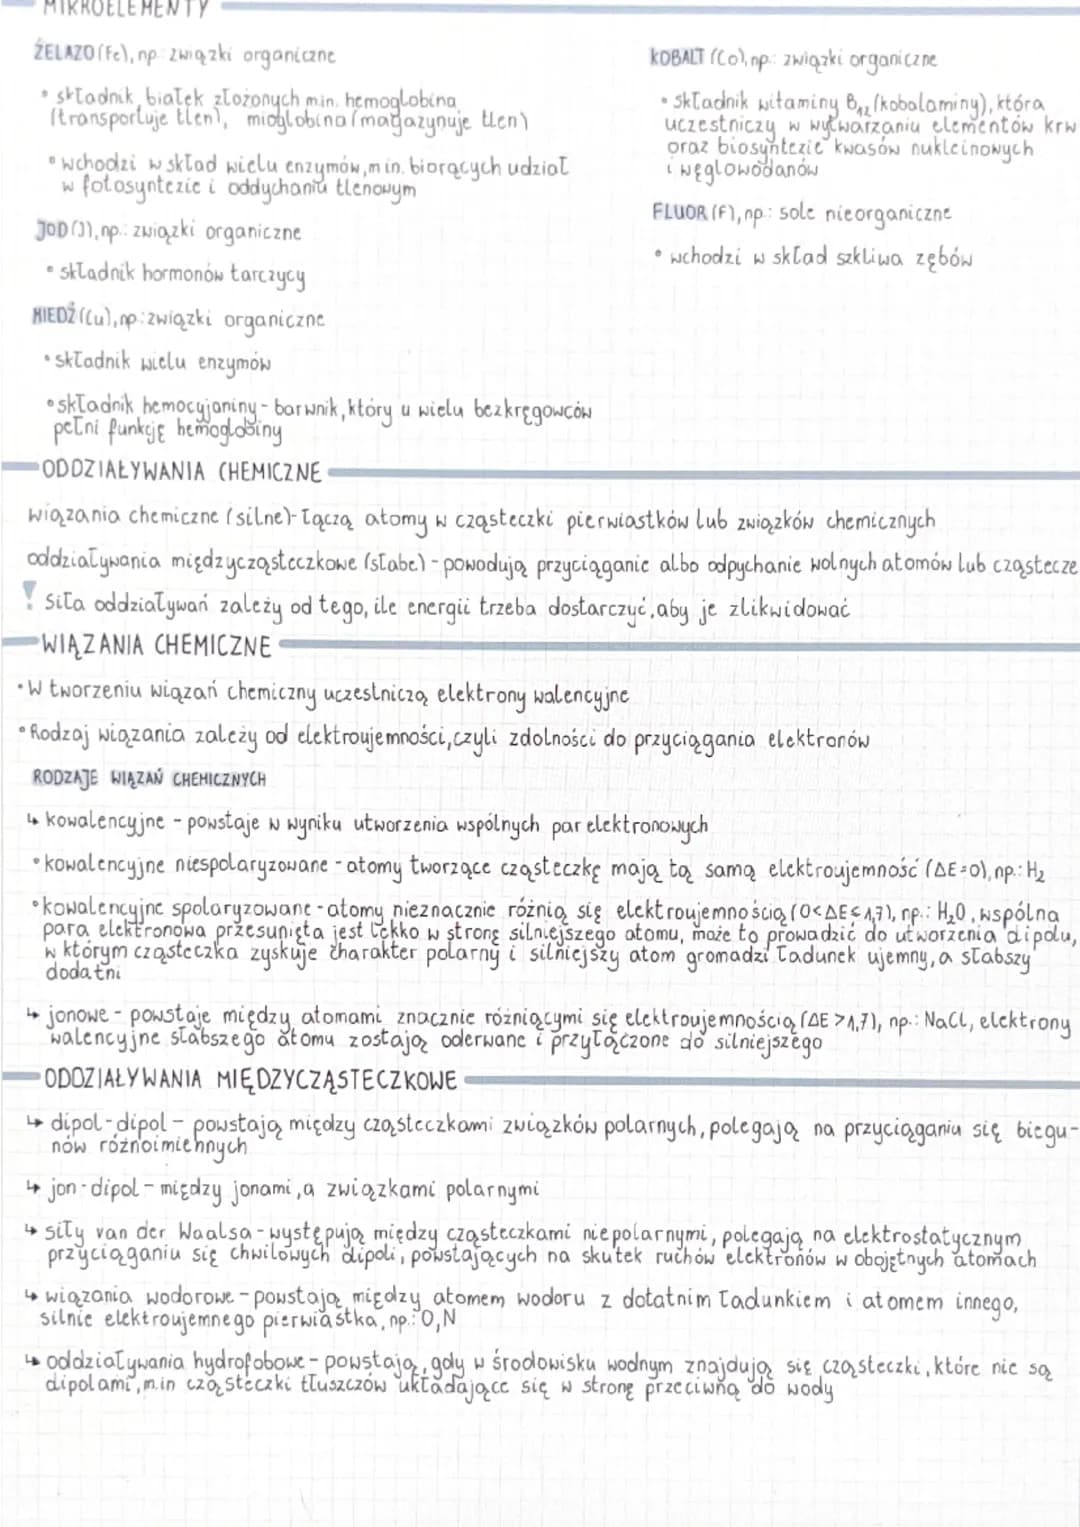 MIKROELEMENTY
ŻELAZO (Fe), np.: związki organiczne
• składnik białek złożonych m.in. hemoglobina
(transportuje tlen), mioglobina (magazynuje tlen)
• wchodzi w skład wielu enzymów, m.in. biorących udział
w fotosyntezie i oddychaniu tlenowym
JOD (J), np.: związki organiczne
• składnik hormonów tarczycy
MIEDŹ (Cu), np.: związki organiczne
• składnik wielu enzymów
• składnik hemocyjaniny - barwnik, który u wielu bezkręgowców
pełni funkcję hemoglobiny
KOBALT (Co), np.: związki organiczne
• składnik witaminy B12 (kobalaminy), która
uczestniczy w wytwarzaniu elementów krw
oraz biosyntezie kwasów nukleinowych
i węglowodanów
FLUOR (F), np.: sole nieorganiczne
• wchodzi w skład szkliwa zębów
ODDZIAŁYWANIA CHEMICZNE
wiązania chemiczne (silne) - łączą atomy w cząsteczki pierwiastków lub związków chemicznych
oddziaływania międzycząsteczkowe (słabe) - powodują przyciąganie albo odpychanie wolnych atomów lub cząstecze
! Siła oddziaływań zależy od tego, ile energii trzeba dostarczyć, aby je zlikwidować
WIĄZANIA CHEMICZNE
• W tworzeniu wiązań chemiczny uczestniczą elektrony walencyjne
• Rodzaj wiązania zależy od elektroujemności, czyli zdolności do przyciągania elektronów
RODZAJE WIĄZAŃ CHEMICZNYCH
↳ kowalencyjne - powstaje w wyniku utworzenia wspólnych par elektronowych
• kowalencyjne niespolaryzowane - atomy tworzące cząsteczkę mają tą samą elektroujemność (ΔE=0), np.: H2
• kowalencyjne spolaryzowane - atomy nieznacznie różnią się elektroujemnością (0<ΔE≤1,7), np.: H2O, wspólna
para elektronowa przesunięta jest lekko w stronę silniejszego atomu, może to prowadzić do utworzenia dipolu,
w którym cząsteczka zyskuje charakter polarny i silniejszy atom gromadzi ładunek ujemny, a słabszy
dodatni
↳ jonowe - powstaje między atomami znacznie różniącymi się elektroujemnością (ΔE>1,7), np.: NaCl, elektrony
walencyjne słabszego atomu zostają oderwane i przyłączone do silniejszego
ODDZIAŁYWANIA MIĘDZYCZĄSTECZKOWE
↳ dipol-dipol - powstają między cząsteczkami związków polarnych, polegają na przyciąganiu się biegu-
nów różnoimiennych
↳ jon-dipol - między jonami, a związkami polarnymi
↳ siły van der Waalsa - występują między cząsteczkami niepolarnymi, polegają na elektrostatycznym
przyciąganiu się chwilowych dipoli, powstających na skutek ruchów elektronów w obojętnych atomach
↳ wiązania wodorowe - powstają między atomem wodoru z dotatnim ładunkiem i atomem innego,
silnie elektroujemnego pierwiastka, np.: O, N
↳ oddziaływania hydrofobowe - powstają, gdy w środowisku wodnym znajdują się cząsteczki, które nie są
dipolami, m.in cząsteczki tłuszczów układające się w stronę przeciwną do wody